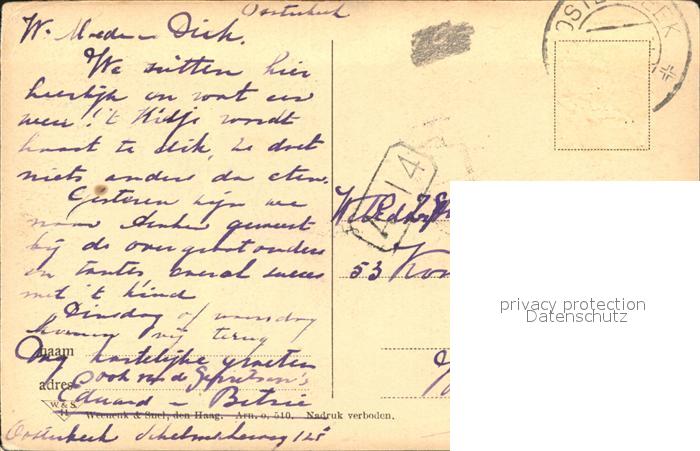 Oosterbeek
W. Moeder en Dick.
We zitten hier
heerlijk en wat een
weer! 't Kidje wordt
haast te dik, ze doet
niets anders dan eten.
Gisteren zijn we
naar Arnhem geweest
bij de overgrootouders
en tantes overal succes
met 't kind
Dinsdag of woensdag
komen wij terug
Dag hartelijke groeten
ook van de
Eduard en Betsie
OOSTERBEEK
A 14
53
naam
adres
W & S
Weenenk & Snel, den Haag. Arn. o. 510. Nadruk verboden.
Oosterbeek 125
privacy protection
Datenschutz